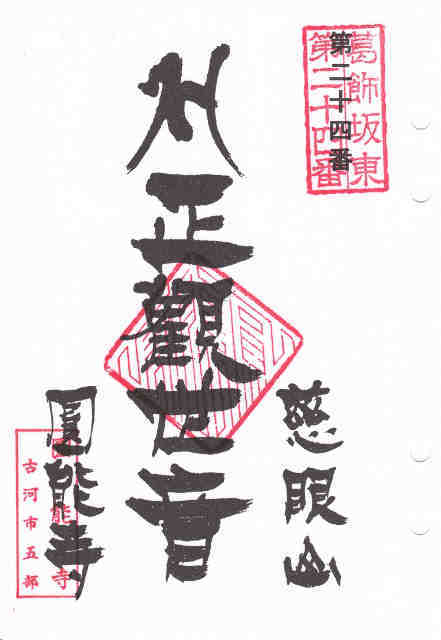 葛飾坂東
第二十四番
第二十四番
慈眼山
正觀世音
圓能寺
能寺
古河市五部